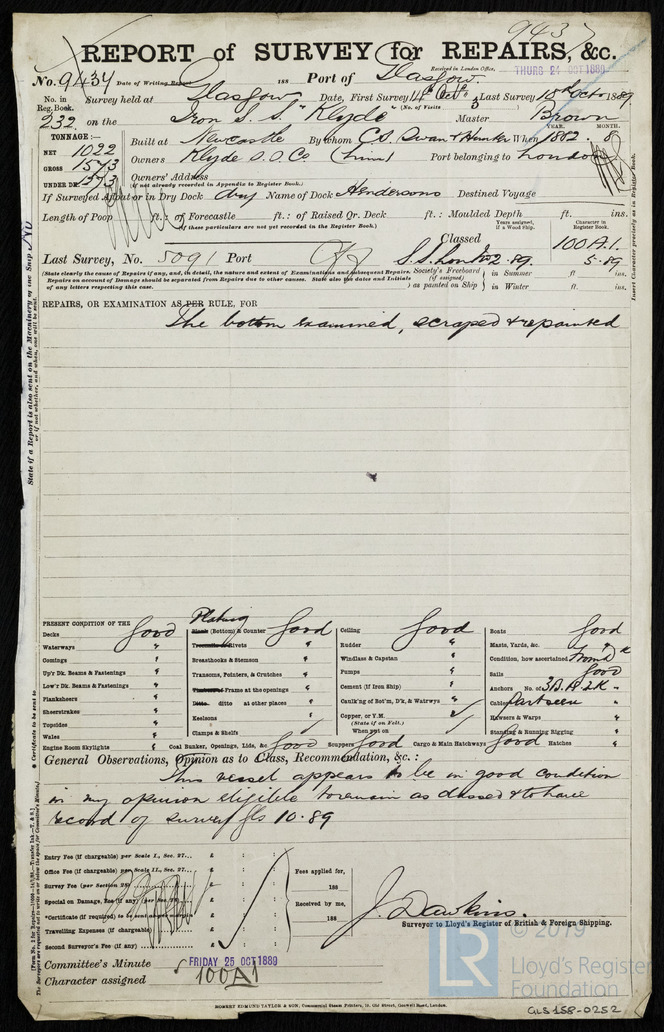 9437
REPORT of SURVEY for REPAIRS, &c.
No. 9434 Date of Writing Report 188 Port of Glasgow Received in London Office, THURS 24 OCT 1889
No. in Reg. Book. Survey held at Glasgow Date, First Survey 14th Octr Last Survey 15th Octr 1889
(No. of Visits)
232 on the Iron S.S. "Klyde" Master Brown
TONNAGE:— YEAR. MONTH.
NET 1022 Built at Newcastle By whom C.S. Swan & Hunter When 1882. 8
GROSS 1573 Owners Klyde S.S. Co (Limd) Port belonging to London
UNDER DK. 1273 Owners' Address
(if not already recorded in Appendix to Register Book.)
If Surveyed Afloat or in Dry Dock dry Name of Dock Hendersons Destined Voyage
Length of Poop ft.: of Forecastle ft.: of Raised Qr. Deck ft.: Moulded Depth ft. ins.
(If these particulars are not yet recorded in the Register Book.)
Years assigned, if a Wood Ship. Character in Register Book.
Classed 100A.1.
Last Survey, No. 5091 Port S.S. Lon No 2. 89. 5.89
(State clearly the cause of Repairs if any, and, in detail, the nature and extent of Examinations and subsequent Repairs. Repairs on account of Damage should be separated from Repairs due to other causes. State also the dates and Initials of any letters respecting this case.
Society's Freeboard (if assigned) as painted on Ship } in Summer ft. ins.
in Winter ft. ins.
Insert Character precisely as in Register Book.
REPAIRS, OR EXAMINATION AS PER RULE, FOR
The bottom examined, scraped & repainted
State if a Report is also sent on the Machinery of the Ship No
or if not whether, and when, one will be sent.
PRESENT CONDITION OF THE
Decks Good
Waterways "
Comings "
Up'r Dk. Beams & Fastenings "
Low'r Dk. Beams & Fastenings "
Planksheers "
Sheerstrakes "
Topsides "
Wales "
Engine Room Skylights "
Plating
Plank (Bottom) & Counter Good
Treenails or Rivets "
Breasthooks & Stemson "
Transoms, Pointers, & Crutches "
Timbers or Frame at the openings "
Ditto. ditto at other places "
Keelsons
Clamps & Shelfs
Coal Bunker, Openings, Lids, &c. Good
Ceiling Good
Rudder "
Windlass & Capstan "
Pumps "
Cement (If Iron Ship) "
Caulk'ng of Bot'm, D'k, & Watrwys "
Copper, or Y.M.
(State if on Felt.)
When put on
Scuppers Good Cargo & Main Hatchways Good Hatches "
Boats Good
Masts, Yards, &c. "
Condition, how ascertained From Dk
Sails Good
Anchors No. of 3 B. 1 S. 2 K "
Cables Part seen
Hawsers & Warps "
Standing & Running Rigging "
General Observations, Opinion as to Class, Recommendation, &c.:
This vessel appears to be in good condition
in my opinion eligible to remain as classed & to have
record of survey Gls 10.89
Certificates to be sent to
Entry Fee (if chargeable) per Scale I., Sec. 27... £ : :
Office Fee (if chargeable) per Scale II., Sec. 27... £ : :
Survey Fee (per Section 28) £ : :
Special on Damage, Fee (if any) (per Sec. 28) £ : :
*Certificate (if required) to be sent as per margin £ : :
Travelling Expenses (if chargeable) £ : :
Second Surveyor's Fee (if any) £ : :
Fees applied for,
188
Received by me,
188
J. Dawkins.
Surveyor to Lloyd's Register of British & Foreign Shipping.
Committee's Minute FRIDAY 25 OCT 1889
Character assigned 100A1
ROBERT EDMUND TAYLOR & SON, Commercial Steam Printers, 19, Old Street, Goswell Road, London.
© 2019
LR Lloyd's Register Foundation
GLS158-0252